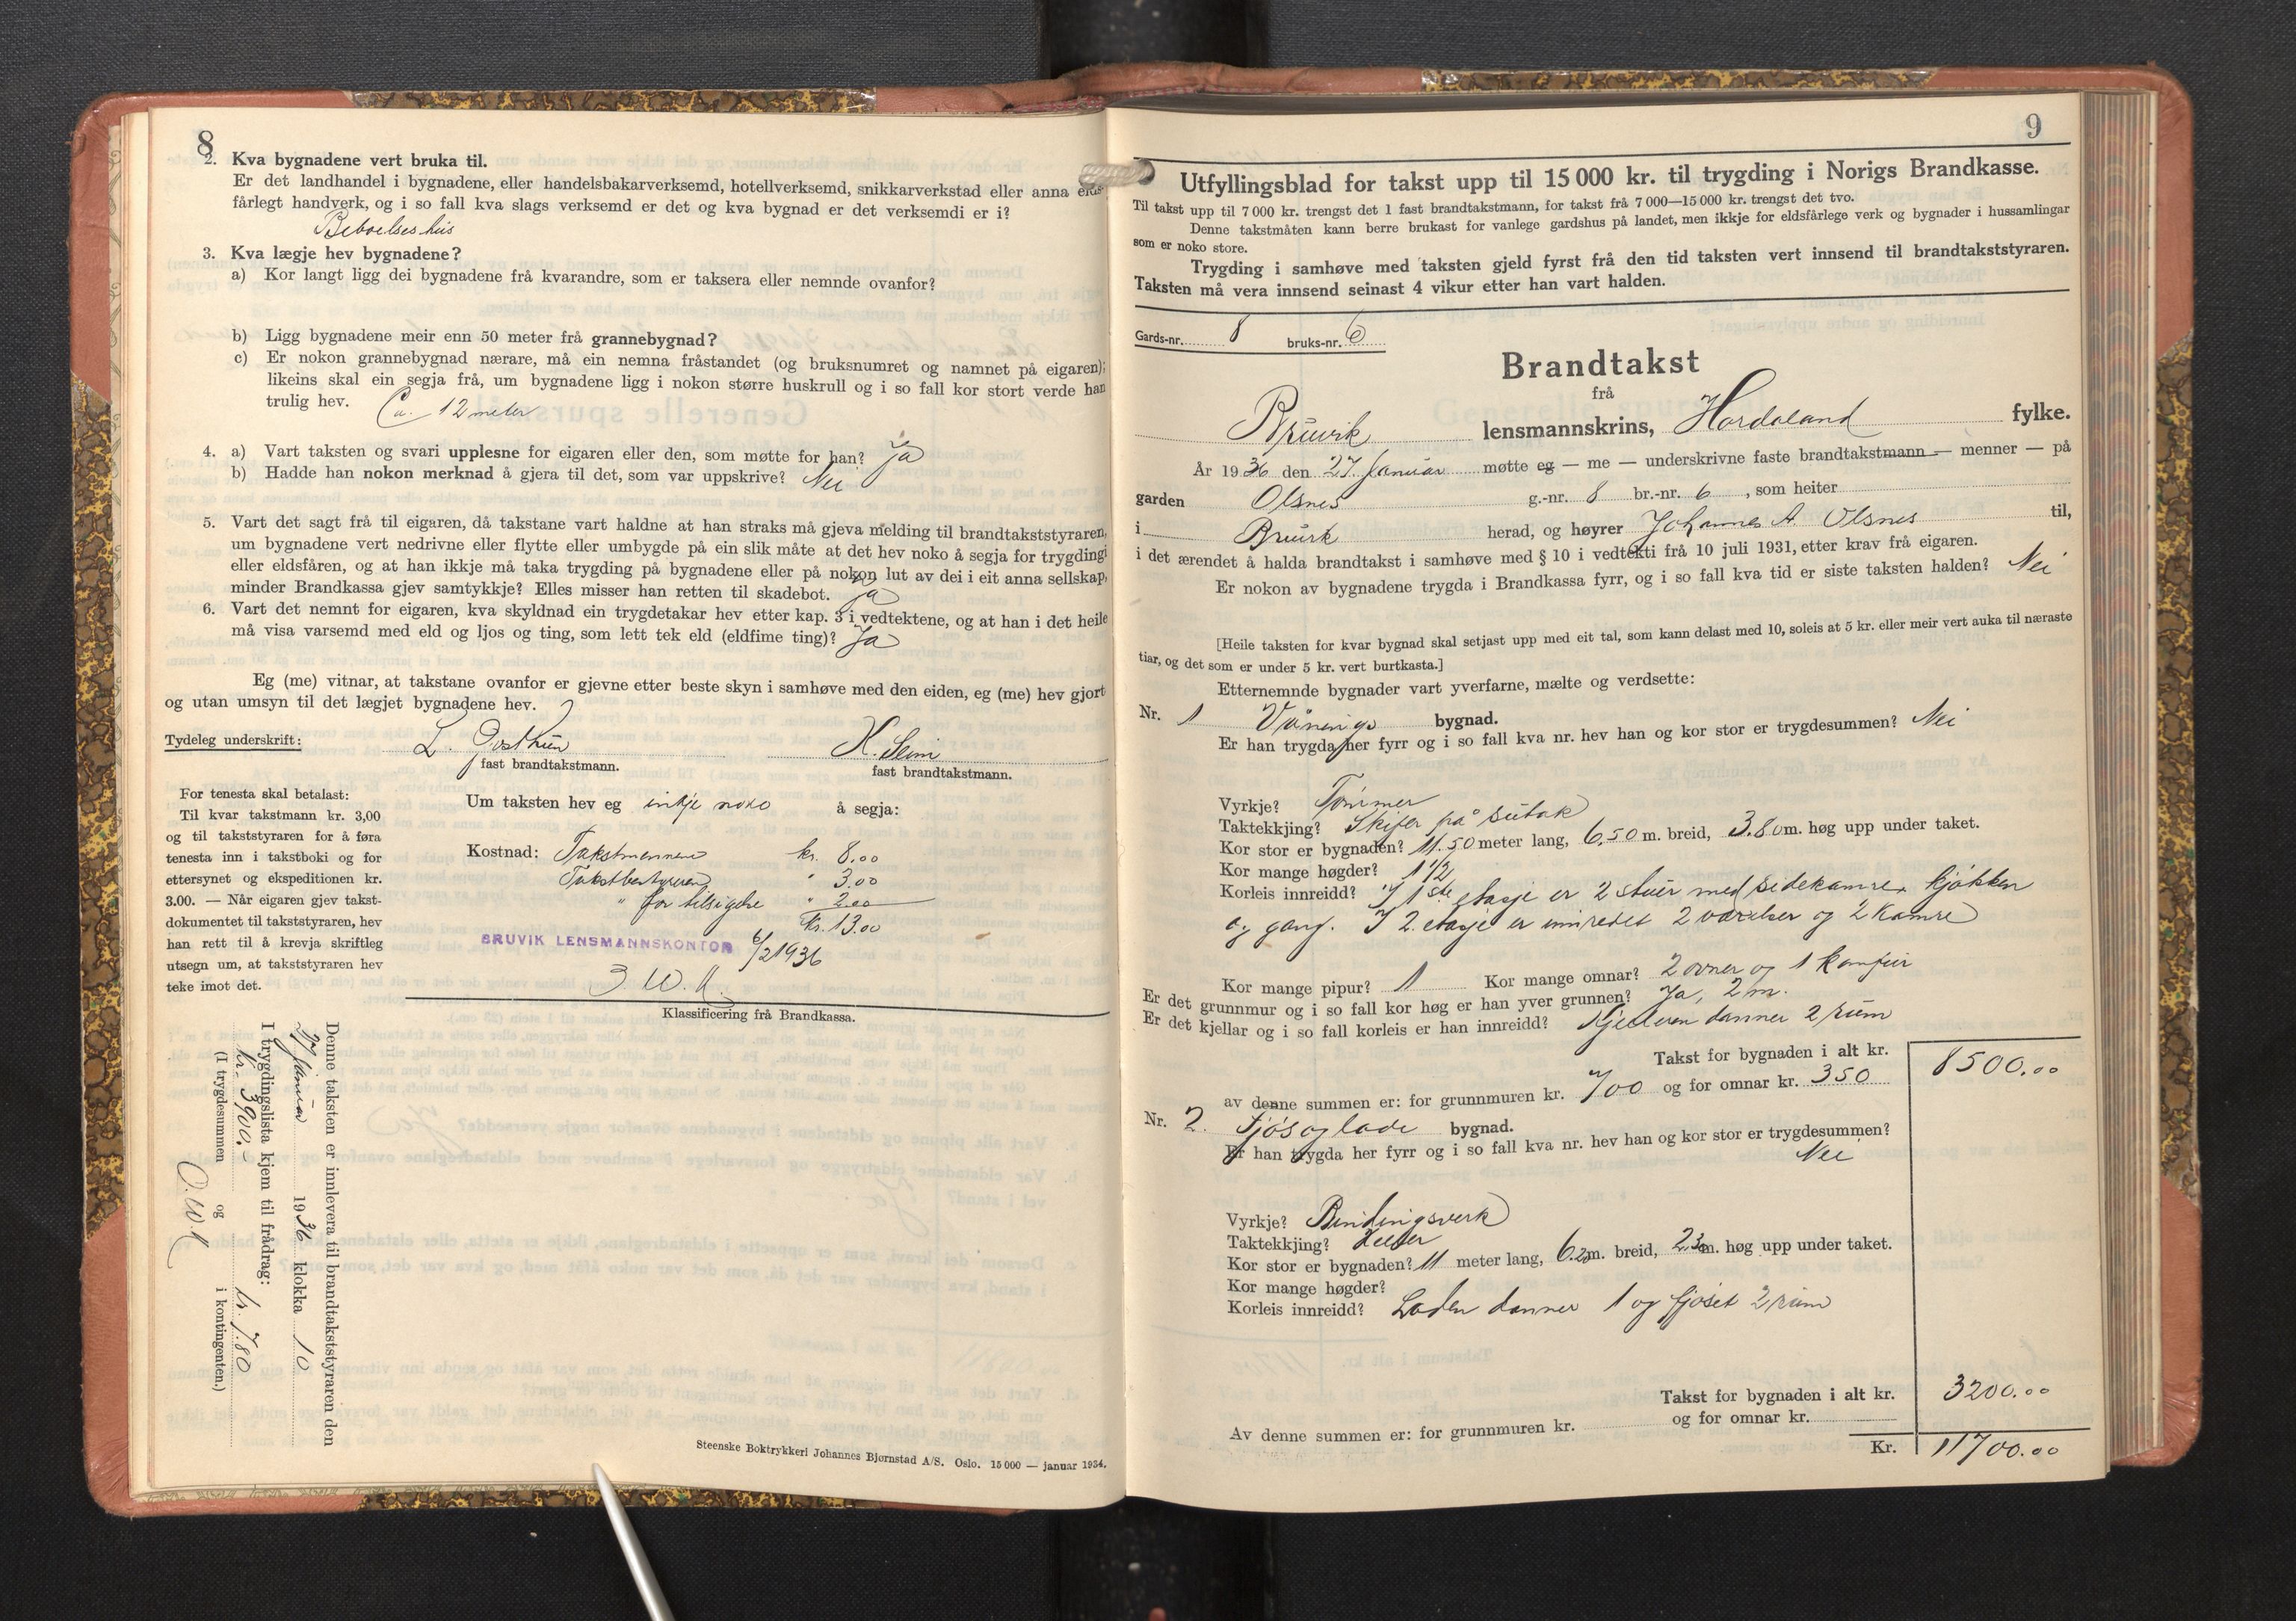 8
2. Kva bygnadene vert bruka til.
Er det landhandel i bygnadene, eller handelsbakarverksemd, hotellverksemd, snikkarverkstad eller anna elds-
fårlegt handverk, og i so fall kva slags verksemd er det og kva bygnad er det verksemdi er i?
Beboelseshus
3. Kva lægje hev bygnadene?
a) Kor langt ligg dei bygnadene frå kvarandre, som er taksera eller nemnde ovanfor?
b) Ligg bygnadene meir enn 50 meter frå grannebygnad?
c) Er nokon grannebygnad nærare, må ein nemna fråstandet (og bruksnumret og namnet på eigaren);
likeins skal ein segja frå, um bygnadene ligg i nokon større huskrull og i so fall kor stort verde han
trulig hev. Ca. 12 meter
4. a) Vart taksten og svari upplesne for eigaren eller den, som møtte for han? Ja
b) Hadde han nokon merknad å gjera til det, som var uppskrive? Nei
5. Vart det sagt frå til eigaren, då takstane vart haldne at han straks må gjeva melding til brandtakststyraren,
um bygnadene vert nedrivne eller flytte eller umbygde på ein slik måte at det hev noko å segja for trygdingi
eller eldsfåren, og at han ikkje må taka trygding på bygnadene eller på nokon lut av dei i eit anna sellskap,
minder Brandkassa gjev samtykkje? Elles misser han retten til skadebot. Ja
6. Vart det nemnt for eigaren, kva skyldnad ein trygdetakar hev etter kap. 3 i vedtektene, og at han i det heile
må visa varsemd med eld og ljos og ting, som lett tek eld (eldfime ting)? Ja
Eg (me) vitnar, at takstane ovanfor er gjevne etter beste skyn i samhøve med den eiden, eg (me) hev gjort
og utan umsyn til det lægjet bygnadene hev.
Tydeleg underskrift: L. Gosthun H. Seim
fast brandtakstmann. fast brandtakstmann.
For tenesta skal betalast:
Til kvar takstmann kr. 3,00
og til takststyraren for å føra
tenesta inn i takstboki og for
ettersynet og ekspeditionen kr.
3.00. — Når eigaren gjev takst-
dokumentet til takststyraren, hev
han rett til å krevja skriftleg
utsegn um, at takststyraren hev
teke imot det.
Um taksten hev eg inkje noko å segja:
Kostnad: Takstmennene kr. 8.00
Takstbestyreren " 3.00
" for tilsigelse " 2.00
Kr. 13.00
BRUVIK LENSMANNSKONTOR 6/2 1936
Klassificering frå Brandkassa.
Denne taksten er innlevera til brandtakststyraren den
27 januar 1936 klokka 10
I trygdingslista kjem til frådrag:
kr. 3900.- kr. 7.80
(I trygdesummen og i kontingenten.)
O.W.K
Steenske Boktrykkeri Johannes Bjørnstad A/S. Oslo. 15 000 — januar 1934.
9
Utfyllingsblad for takst upp til 15 000 kr. til trygding i Norigs Brandkasse.
Til takst upp til 7 000 kr. trengst det 1 fast brandtakstmann, for takst frå 7 000—15 000 kr. trengst det tvo.
Denne takstmåten kann berre brukast for vanlege gardshus på landet, men ikkje for eldsfårlege verk og bygnader i hussamlingar
som er noko store.
Trygding i samhøve med taksten gjeld fyrst frå den tid taksten vert innsend til brandtakststyraren.
Taksten må vera innsend seinast 4 vikur etter han vart halden.
Gards-nr. 8 bruks-nr. 6
Brandtakst
frå
Bruvik lensmannskrins, Hordaland fylke.
År 1936 den 27. Januar møtte eg — me — underskrivne faste brandtakstmann — menner — på
garden Olsnes g.-nr. 8 br.-nr. 6, som heiter
i Bruvik herad, og høyrer Johannes A. Olsnes til,
i det ærendet å halda brandtakst i samhøve med § 10 i vedtekti frå 10 juli 1931, etter krav frå eigaren.
Er nokon av bygnadene trygda i Brandkassa fyrr, og i so fall kva tid er siste taksten halden? Nei
[Heile taksten for kvar bygnad skal setjast upp med eit tal, som kann delast med 10, soleis at 5 kr. eller meir vert auka til næraste
tiar, og det som er under 5 kr. vert burtkasta.]
Etternemnde bygnader vart yverfarne, mælte og verdsette:
Nr. 1 Vånings bygnad.
Er han trygda her fyrr og i so fall kva nr. hev han og kor stor er trygdesummen? Nei
Vyrkje? Tømmer
Taktekkjing? Skifer på sutak
Kor stor er bygnaden? 11.50 meter lang, 6.50 m. breid, 3.80 m. høg upp under taket.
Kor mange høgder? 1 1/2
Korleis innreidd? I 1ste etasje er 2 stuer med sidekamre, kjøkken
og gang. I 2. etasje er innredet 2 værelser og 2 kamre
Kor mange pipur? 1 Kor mange omnar? 2 ovner og 1 komfur
Er det grunnmur og i so fall kor høg er han yver grunnen? Ja, 2 m.
Er det kjellar og i so fall korleis er han innreidd? Kjelleren danner 2 rum
Takst for bygnaden i alt kr. 8500.00
av denne summen er: for grunnmuren kr. 700 og for omnar kr. 350
Nr. 2. Fjøs og lade bygnad.
Er han trygda her fyrr og i so fall kva nr. hev han og kor stor er trygdesummen?
Nei
Vyrkje? Bindingsverk
Taktekkjing? Heller
Kor stor er bygnaden? 11 meter lang, 6.20 m. breid, 2.30 m. høg upp under taket.
Kor mange høgder?
Korleis innreidd? Laden danner 1 og fjøset 2 rum
Takst for bygnaden i alt kr. 3200.00
Av denne summen er: for grunnmuren kr. og for omnar kr.
Kr. 11700.00